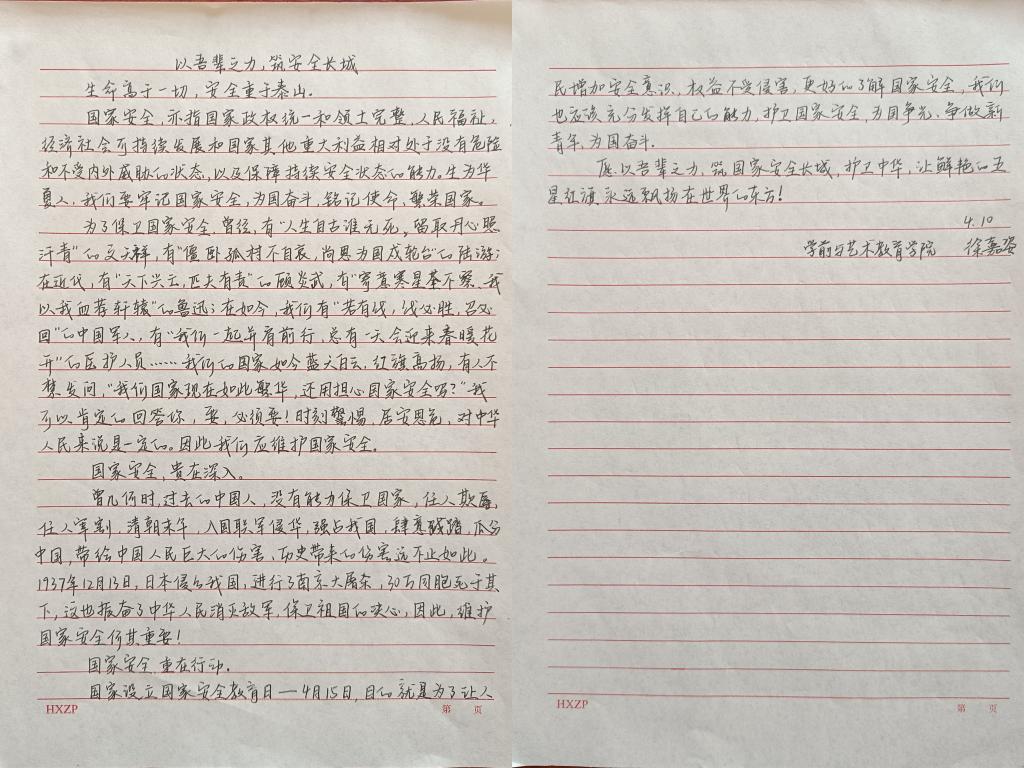 以吾辈之力,筑安全长城
生命高于一切,安全重于泰山.
国家安全,亦指国家政权统一和领土完整,人民福祉,
经济社会可持续发展和国家其他重大利益相对处于没有危险
和不受内外威胁的状态,以及保障持续安全状态的能力。生为华
夏人,我们要牢记国家安全,为国奋斗,铭记使命,繁荣国家。
为了保卫国家安全,曾经,有“人生自古谁无死。留取丹心照
汗青”的文天祥,有“僵卧孤村不自哀,尚思为国戍轮台”的陆游;
在近代,有“天下兴亡,匹夫有责”的顾炎武,有“寄意寒星荃不察,我
以我血荐轩辕”的鲁迅;在如今,我们有“若有战,战必胜,召必
回”的中国军人,有“我们一起并肩前行,总有一天会迎来春暖花
开”的医护人员……我们的国家如今蓝天白云,红旗高扬,有人不
禁发问,“我们国家现在如此繁华,还用担心国家安全吗?”我
可以肯定的回答你,要,必须要!时刻警惕,居安思危,对中华
人民来说是一定的。因此我们应维护国家安全.
国家安全,贵在深入。
曾几何时,过去的中国人,没有能力保卫国家,任人欺辱,
任人宰割,清朝末年,八国联军侵华,强占我国,肆意践踏,瓜分
中国,带给中国人民巨大的伤害,历史带来的伤害远不止如此。
1937年12月13日,日本侵占我国,进行了南京大屠杀,30万同胞死于其
下,这也振奋了中华人民消灭敌军,保卫祖国的决心,因此,维护
国家安全何其重要!
国家安全,重在行动.
国家设立国家安全教育日—4月15日,目的就是为了让人
HXZP
第 页
民增加安全意识,权益不受侵害,更好的了解国家安全,我们
也应该充分发挥自己的能力,护卫国家安全,为国争光,争做新
青年,为国奋斗.
愿以吾辈之力,筑国家安全长城,护卫中华,让鲜艳的五
星红旗永远飘扬在世界的东方!
4.10
学前与艺术教育学院 徐嘉
HXZP
第 页